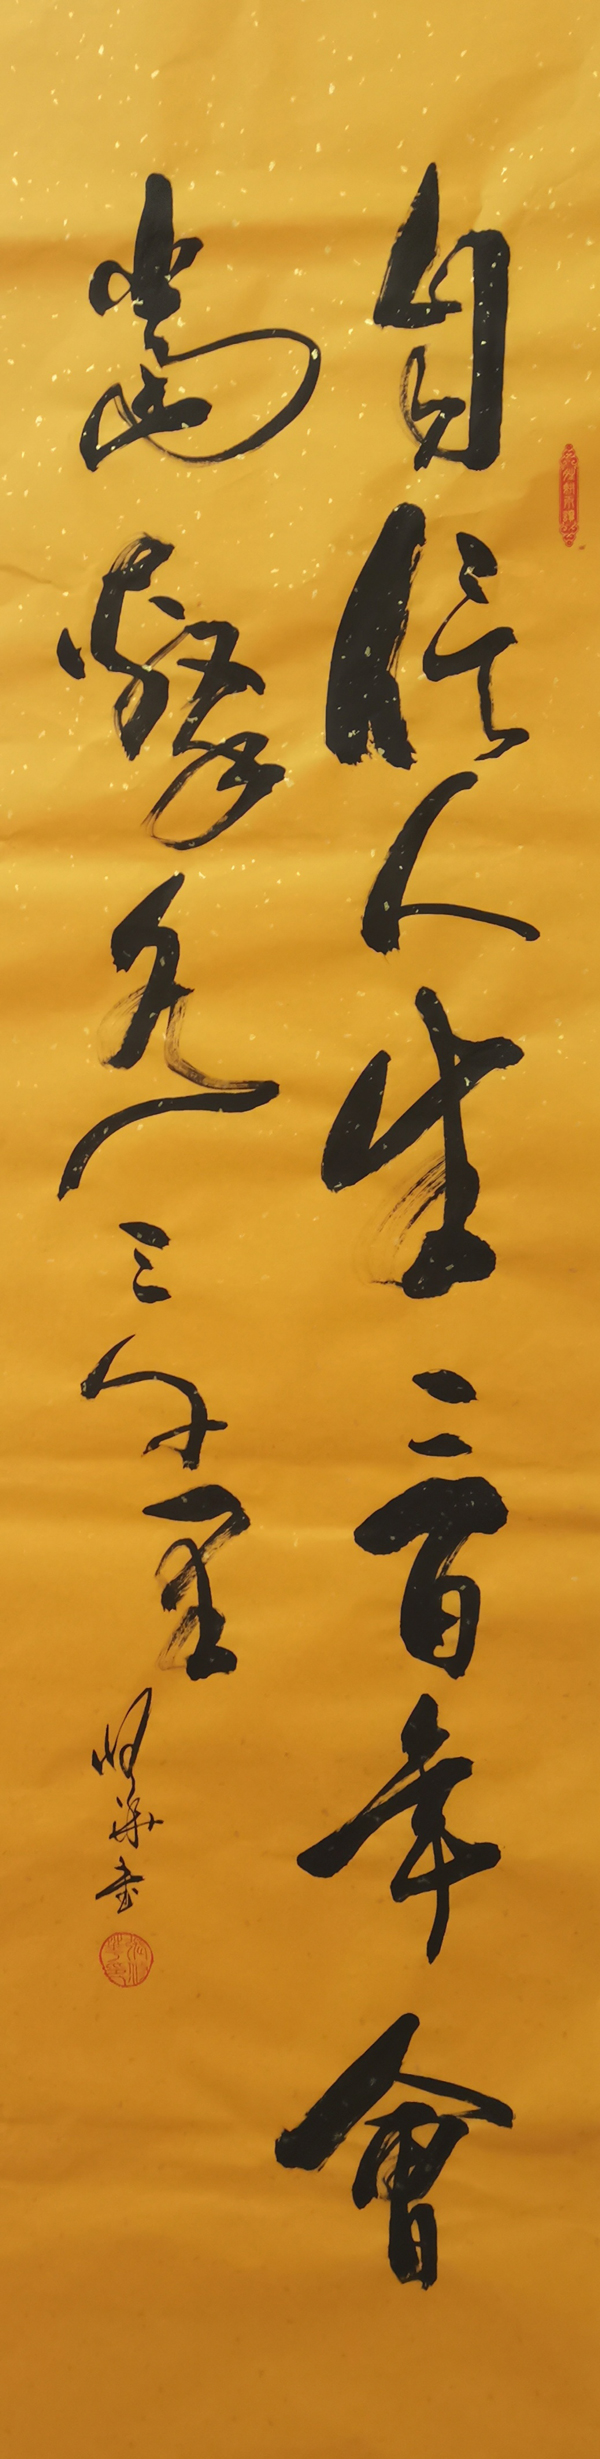 自信人生二百年會
當擊水三千里
華书